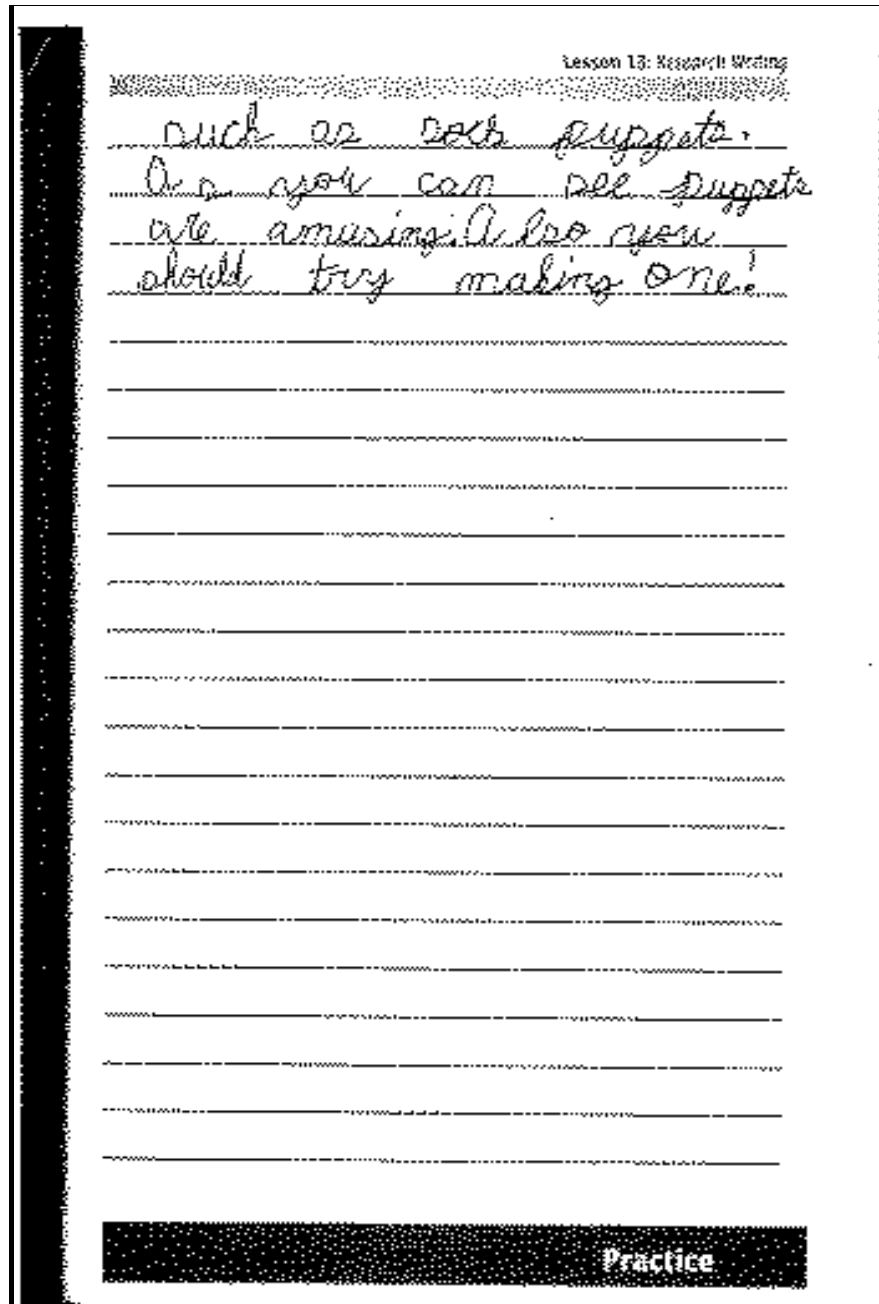 Lesson 13: Research Writing
such as sock puppets.
As you can see puppets
are amusing. Also you
should try making one!
Practice